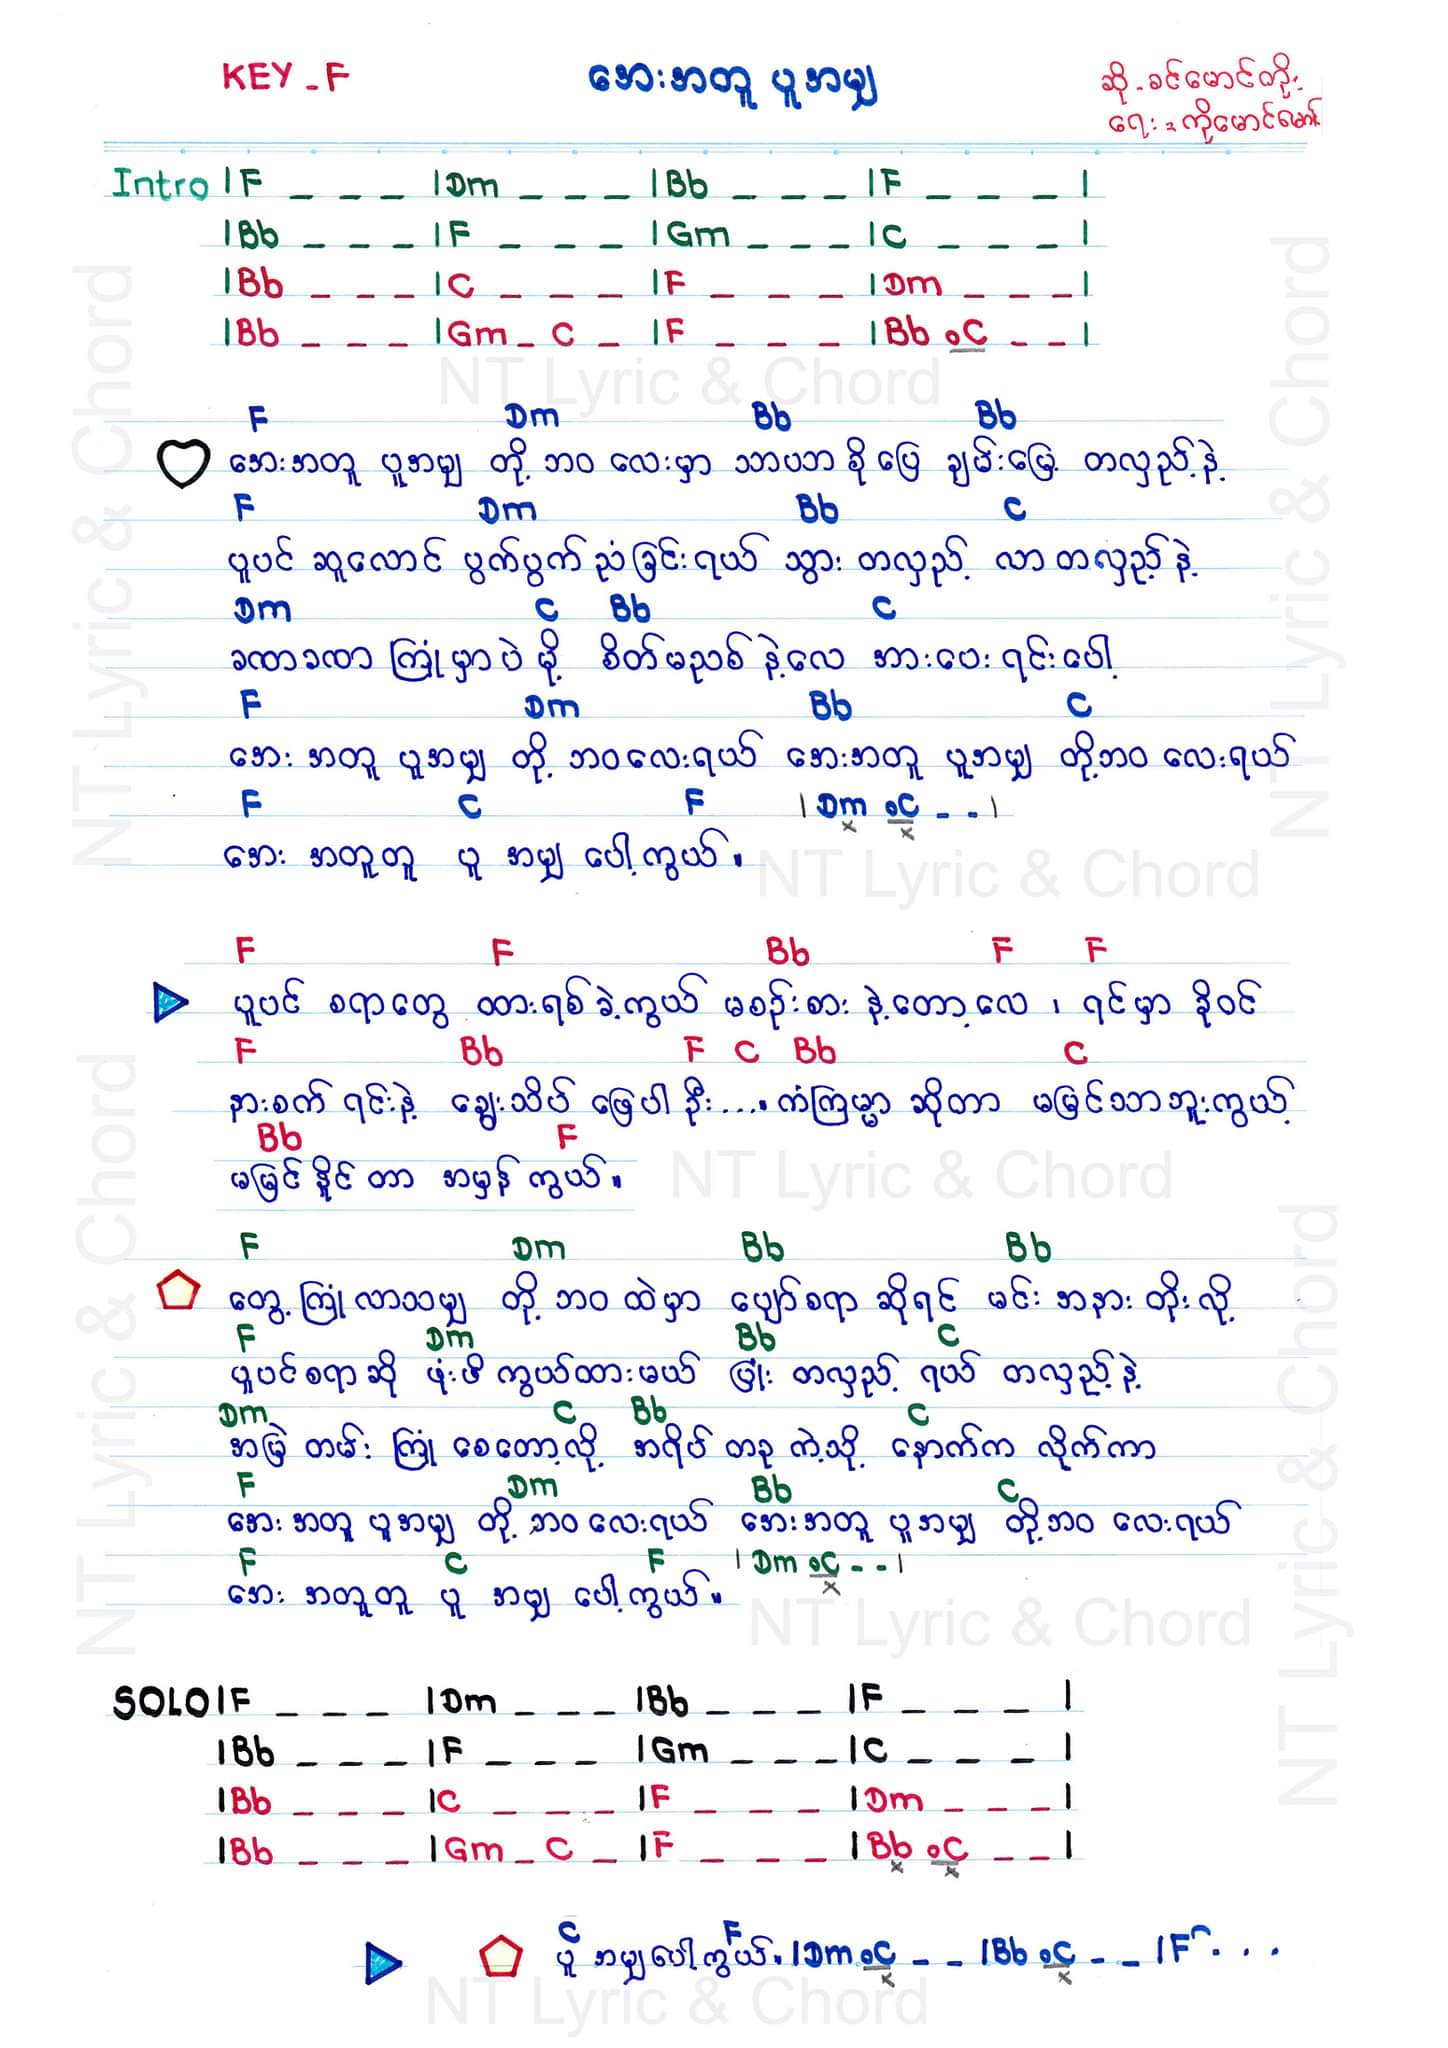 KEY - F အေးအတူ ပူအမျှ ဆို - ခင်မောင်တိုး
ရေး = ကိုမောင်မောင်
Intro |F _ _ _ |Dm _ _ _ |Bb _ _ _ |F _ _ _ |
|Bb _ _ _ |F _ _ _ |Gm _ _ _ |C _ _ _ |
|Bb _ _ _ |C _ _ _ |F _ _ _ |Dm _ _ _ |
|Bb _ _ _ |Gm _ C _ |F _ _ _ |Bb oC _ _ |
NT Lyric & Chord
F Dm Bb Bb
အေးအတူ ပူအမျှ တို့ ဘဝ လေးမှာ သာပဘ စို ပြေ ချမ်းမြေ့ တလှည့်နဲ့
F Dm Bb C
ပူပင် ဆူလောင် ပွက်ပွက် ညံ ခြင်းရယ် သွား တလှည့် လာ တလှည့်နဲ့
Dm C Bb C
ခဏခဏ ကြုံမှာပဲ မို့ စိတ်မညစ် နဲ့လေ အားပေး ရင်းပေါ့
F Dm Bb C
အေး အတူ ပူအမျှ တို့ ဘဝလေးရယ် အေးအတူ ပူအမျှ တို့ဘဝ လေးရယ်
F C F |Dm oC - - |
အေး အတူတူ ပူ အမျှ ပေါ့ကွယ်။
NT Lyric & Chord
F F Bb F F
ပူပင် စရာတွေ ထားရစ်ခဲ့ကွယ် မစဉ်းစား နဲ့တော့လေ ၊ ရင်မှာ ခိုဝင်
F Bb F C Bb C
နားစက် ရင်းနဲ့ ချွေးသိပ် ဖြေပါ ဦး....။ ကံကြမ္မာ ဆိုတာ မမြင်သာဘူးကွယ့်
Bb F
မမြင်နိုင် တာ အမှန် ကွယ်။
NT Lyric & Chord
F Dm Bb Bb
တွေ့ကြုံလာသမျှ တို့ ဘဝ ထဲမှာ ပျော်စရာ ဆိုရင် မင်း အနား တိုးလို့
F Dm Bb C
ပူပင်စရာ ဆို ဖုံးဖိ ကွယ်ထားမယ် ပြုံး တလှည့် ရယ် တလှည့်နဲ့
Dm C Bb C
အမြဲ တမ်း ကြုံ စေတော့လို့ အရိပ် တခု ကဲ့သို့ နောက်က လိုက်ကာ
F Dm Bb C
အေးအတူ ပူအမျှ တို့ ဘဝလေးရယ် အေးအတူ ပူအမျှ တို့ဘဝ လေးရယ်
F C F |Dm oC - - |
အေး အတူတူ ပူ အမျှ ပေါ့ကွယ်။
NT Lyric & Chord
SOLO |F _ _ _ |Dm _ _ _ |Bb _ _ _ |F _ _ _ |
|Bb _ _ _ |F _ _ _ |Gm _ _ _ |C _ _ _ |
|Bb _ _ _ |C _ _ _ |F _ _ _ |Dm _ _ _ |
|Bb _ _ _ |Gm _ C _ |F _ _ _ |Bb oC _ _ |
C F
ပူ အမျှပေါ့ကွယ်။ |Dm oC _ _ |Bb oC _ _ |F . . .
NT Lyric & Chord
NT Lyric & Chord
NT Lyric & Chord
NT Lyric & Chord
NT Lyric & Chord